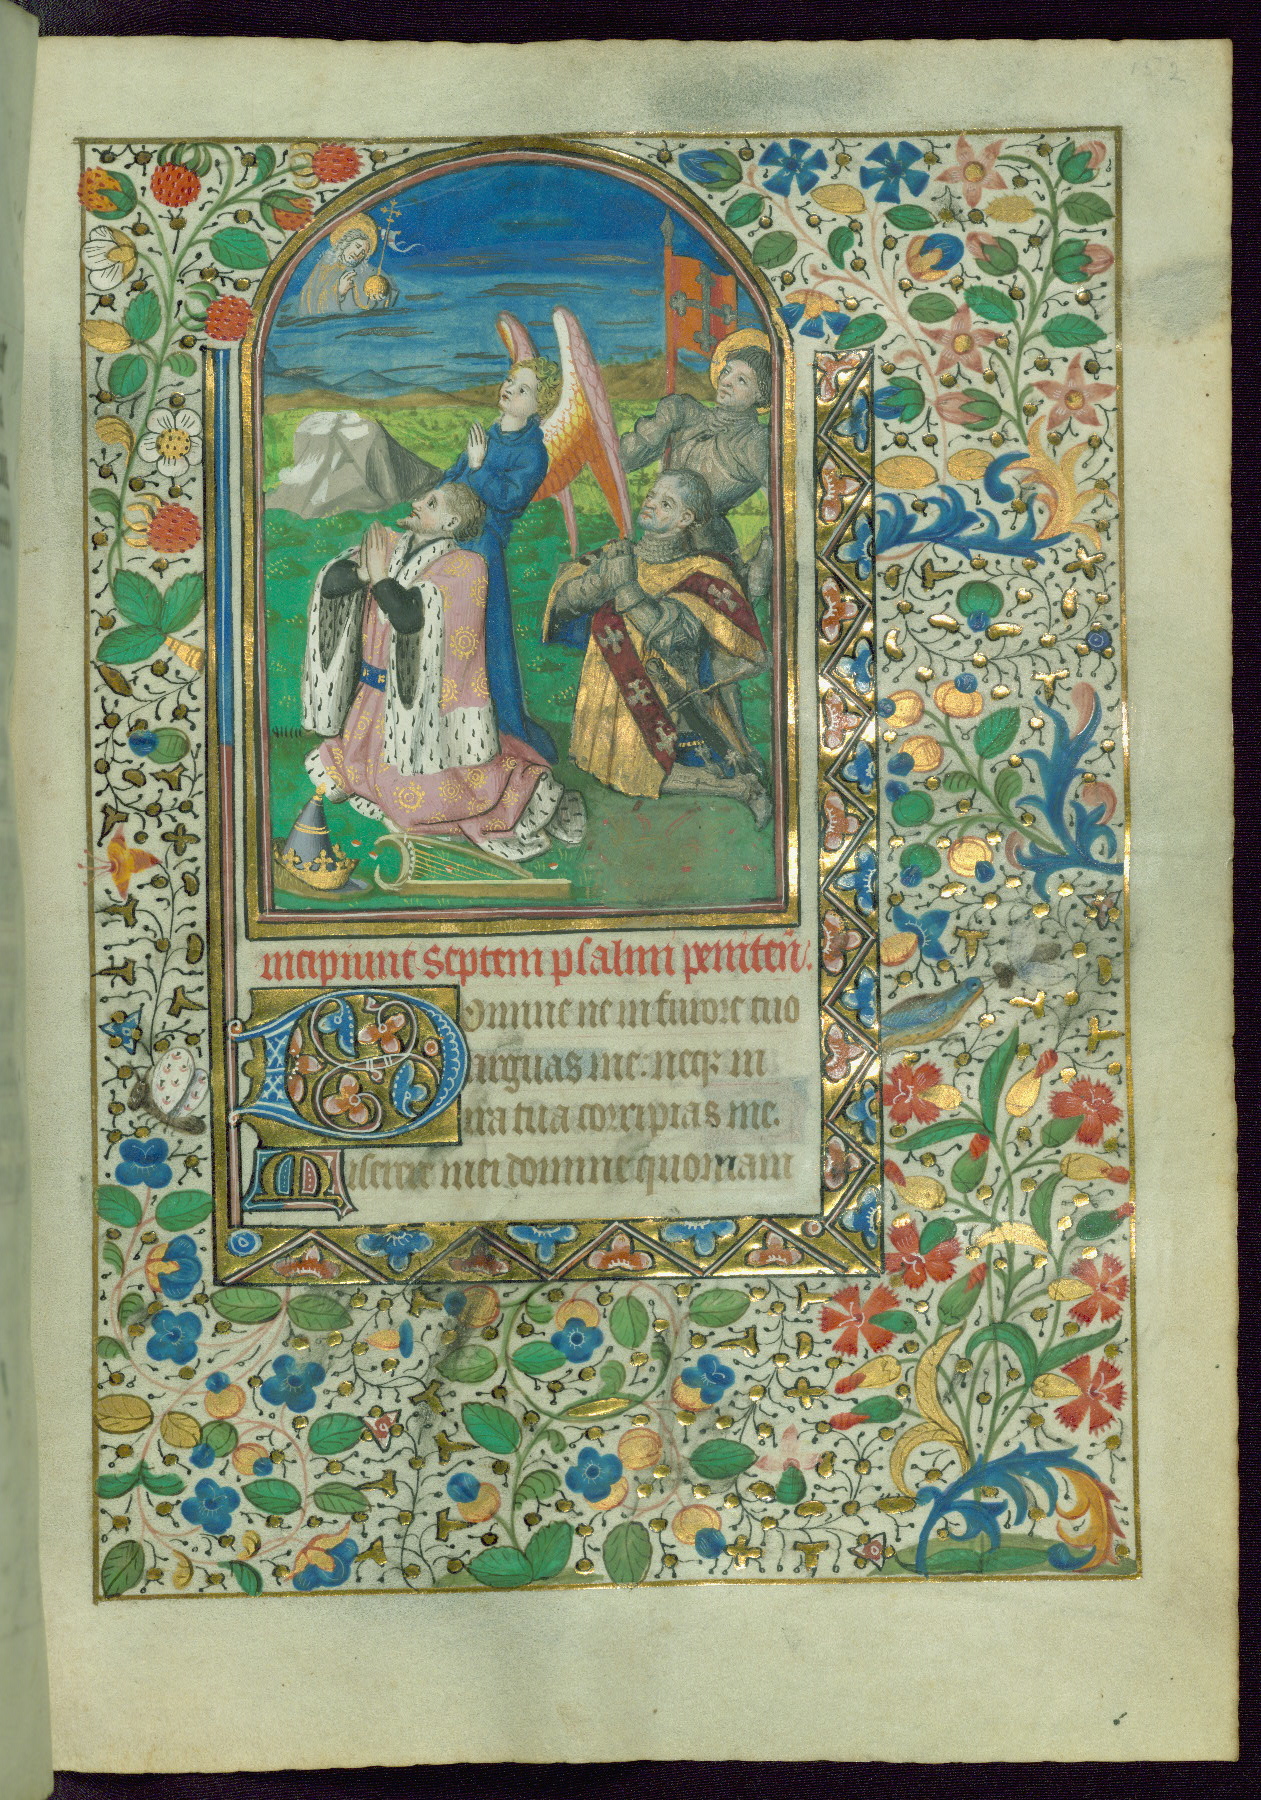 152
incipiunt Septem psalmi peniteñ.
Domine ne in furore tuo
arguas me: neqꝫ in
ira tua corripias me.
Miserere mei domine quoniam